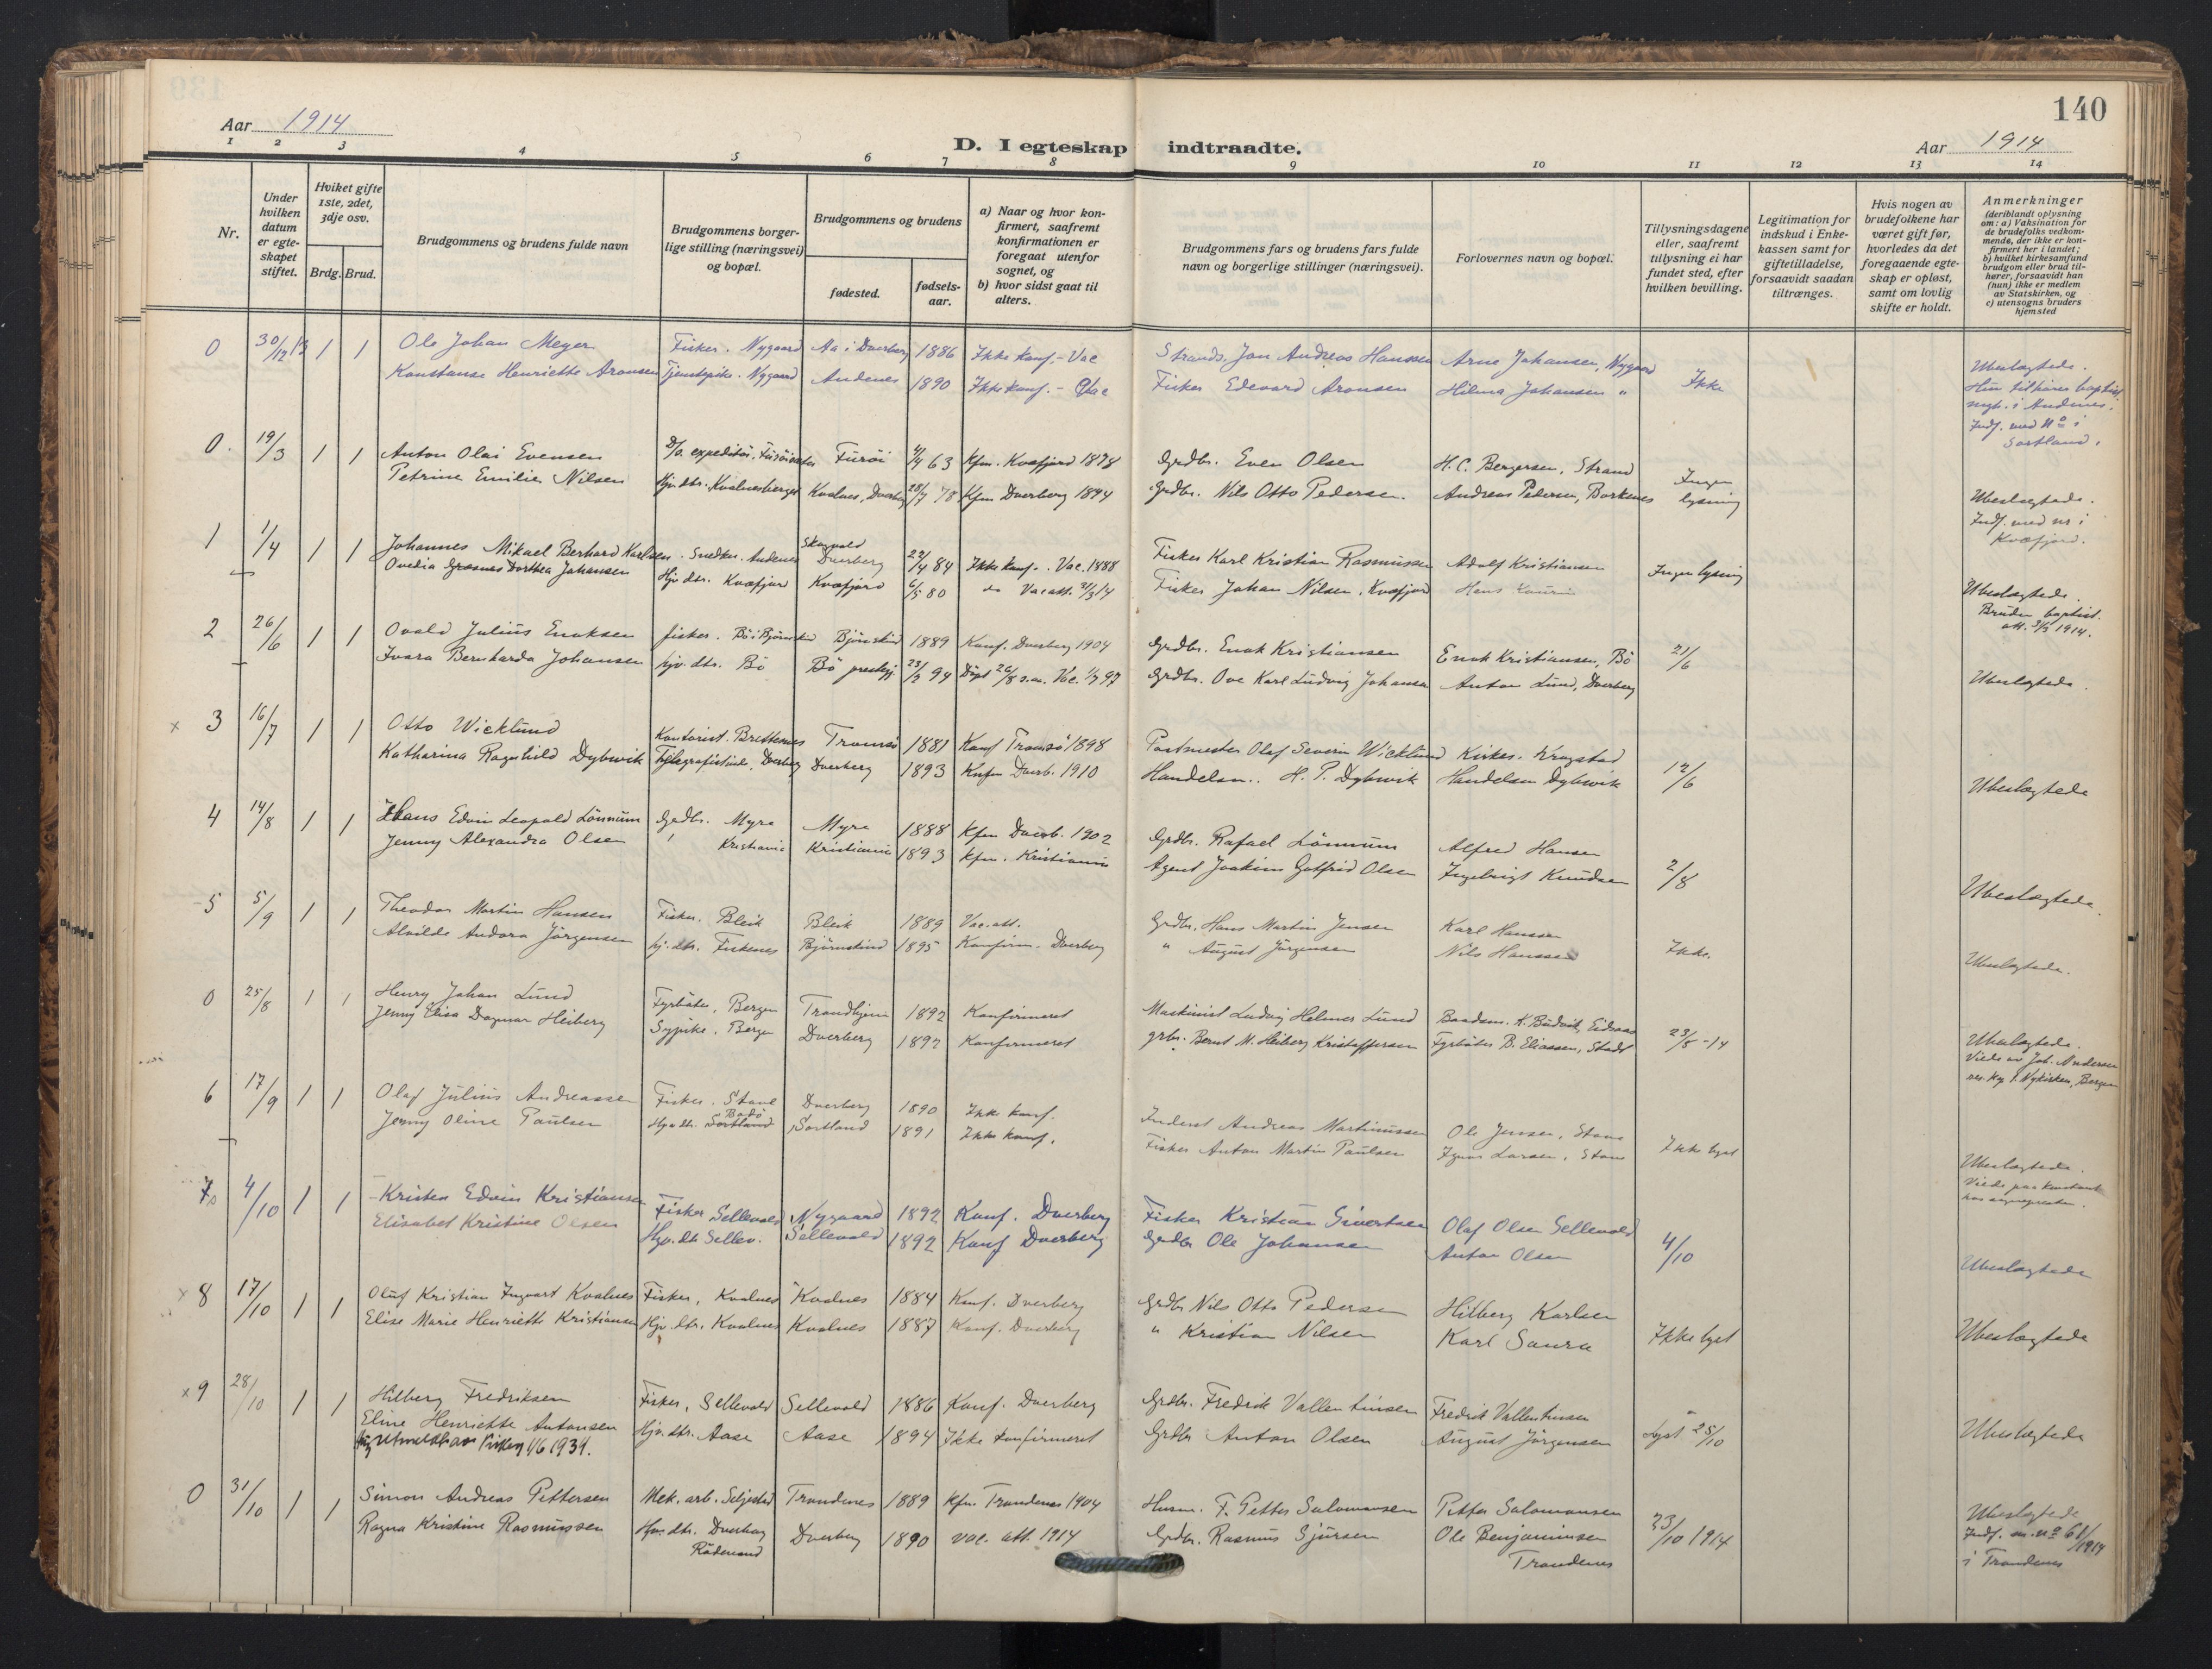 140
Aar 1914
D. I egteskap indtraadte.
Aar 1914
1 2 3 4 5 6 7 8 9 10 11 12 13 14
Nr.
Under hvilken datum er egteskapet stiftet.
Hviket gifte 1ste, 2det, 3dje osv.
Brdg. Brud.
Brudgommens og brudens fulde navn
Brudgommens borgerlige stilling (næringsvei) og bopæl.
Brudgommens og brudens
fødested.
fødselsaar.
a) Naar og hvor konfirmert, saafremt konfirmationen er foregaat utenfor sognet, og
b) hvor sidst gaat til alters.
Brudgommens fars og brudens fars fulde navn og borgerlige stillinger (næringsvei).
Forlovernes navn og bopæl.
Tillysningsdagene eller, saafremt tillysning ei har fundet sted, efter hvilken bevilling.
Legitimation for indskud i Enkekassen samt for giftetilladelse, forsaavidt saadan tiltrænges.
Hvis nogen av brudefolkene har været gift før, hvorledes da det foregaaende egteskap er opløst, samt om lovlig skifte er holdt.
Anmerkninger
(deriblandt oplysning om: a) Vaksination for de brudefolks vedkommende, der ikke er konfirmert her i landet; b) hvilket kirkesamfund brudgom eller brud tilhører, forsaavidt han (hun) ikke er medlem av Statskirken, og c) utensogns bruders hjemsted
0 30/12 13 1 1 Ole Johan Meyer Fisker. Nygaard Aa i Dverberg 1886 Ikke konf. - Vac Strands. Jon Andreas Hanssen Arne Johansen, Nygaard Ikke Ubeslægtede.
Konstanse Henriette Aronsen Tjenstpike. Nygaard Andenes 1890 Ikke konf. - Vac Fisker Edevard Aronsen Hilma Johansen " Hun tilhører baptist
i Andenes.
Indf. med No i
Sortland.
0. 19/3 1 1 Anton Olai Evensen D/s. expeditör. Furöi 4/4 63 Kfm. Kvæfjord 1878 Grdbr. Even Olsen H. C. Bergersen, Strand Ingen lysning Ubeslægtede.
Petrine Emilie Nilsen Hjv. dtr. Kvalnesberget Kvalnes, Dverberg 28/7 78 Kfm Dverberg 1894 Grdbr. Nils Otto Pedersen. Andreas Pedersen, Borkenes Indf. med nr i
Kvæfjord.
1 1/4 1 1 Johannes Mikael Berhard Karlsen. Snedker. Andenes Skogvold Dverberg 22/4 84 Ikke konf. . Vac. 1888 Fisker Karl Kristian Rasmussen Adolf Kristiansen Ingen lysning Ubeslægtede.
Ovedia Dorthea Johansen Hjv dtr. Kvæfjord Kvæfjord 6/5 80 do Vac att. 31/3 14 Fisker Johan Nilsen, Kvæfjord Hans Bruden baptist.
att. 31/3 1914.
2 26/6 1 1 Ovald Julius Enoksen fisker. Bö i Björnskin Björnskin 1889 Konf. Dverberg 1904 Grdbr. Enok Kristiansen Enok Kristiansen, Bö 21/6 Ubeslægtede.
Ivara Bernharda Johansen hjv. dtr. Bö Bö prestegj. 23/2 94 Döpt 26/8 s.a. Vac. 1/7 97 Grdbr. Ove Karl Ludvig Johansen Anton Lund, Dverberg
x 3 16/7 1 1 Otto Wicklund Kontorist. Brettesnes Tromsö 1881 Konf Tromsö 1898 Postmester Olaf Severin Wicklund Kirkes. Krogstad 12/6 Ubeslægtede
Katharina Ragnhild Dybwik Telegrafistinde, Dverberg Dverberg 1893 Knfm Dverb. 1910 Handelsm. H. P. Dybwik Handelsm Dybwik
4 14/8 1 1 Hans Edvin Leopold Lönnum Grdbr. Myre Myre 1888 Kfm Dverb. 1902 Grdbr. Rafael Lönnum Alfred Hansen 2/8 Ubeslægtede.
Jenny Alexandra Olsen Kristiania Kristiania 1893 Kfm. Kristiania Agent Joakim Gotfrid Olsen Ingebrigt Knudsen
5 5/9 1 1 Theodor Martin Hansen Fisker. Bleik Bleik 1889 Vac. att. Grdbr. Hans Martin Jensen Karl Hansen Ikke. Ubeslægtede.
Alvilde Andora Jörgensen hj. dtr. Fiskenes Björnskind 1895 Konfirm. Dverberg " August Jörgensen Nils Hanssen
0 25/8 1 1 Henry Johan Lund Fyrböter, Bergen Trondhjem 1892 Konfirmeret Maskinist Ludvig Helmer Lund Baadsm. K. Budvik, Eidsaas 23/8 -14 Ubeslægtede.
Jenny Elisa Dagmar Heiberg Sypike, Bergen Dverberg 1892 Konfirmeret grbr. Bernt M. Heiberg Kristoffersen Fyrböter B. Eliassen, Stadt Viede av Joh. Andersen
res. kap. t. Nykirken, Bergen
6 17/9 1 1 Olaf Julius Andreassen Fisker. Stave Dverberg 1890 Ikke konf. Inderst Andreas Martinussen Ole Jensen, Stave Ikke lyst Ubeslægtede.
Jenny Oline Paulsen Hjv dtr. Sortland Bodö Sortland 1891 Ikke konf. Fisker Anton Martin Paulsen Larsen, Stave Viede paa kontoret
hos sogneprest
7. 4/10 1 1 Kristen Edvin Kristiansen Fisker Sellevold Nygaard 1892 Konf. Dverberg Fisker Kristian Sivertsen Olaf Olsen Sellevold 4/10 Ubeslægtede
Elisabet Kristine Olsen Hjv. dtr Sellev. Sellevold 1892 Konf Dverberg Grdbr Ole Johansen Anton Olsen
x 8 17/10 1 1 Oluf Kristian Ingvart Kvalnes Fisker, Kvalnes Kvalnes 1884 Konf. Dverberg Grdbr Nils Otto Pedersen Hilberg Karlsen Ikke lyst Ubeslægtede
Elise Marie Henriette Kristiansen Hjv. dtr. Kvalnes Kvalnes 1887 Konf. Dverberg " Kristian Nilsen Karl Saura
x 9 28/10 1 1 Hilberg Fredriksen Fisker, Sellevold Sellevold 1886 Konf. Dverberg Grdbr. Fredrik Vallentinsen Fredrik Vallentinsen Lyst 25/10 Ubeslægtede
Eline Henriette Antonsen Hjv. dtr. Aase Aase 1894 Ikke konfirmeret Grdbr Anton Olsen August Jörgensen
Utmeldt av kirken 1/6 1931.
0 31/10 1 1 Simon Andreas Pettersen Mek. arb. Seljestad Trondenes 1889 Kfm. Trondenes 1904 Husm. F. Petter Salomonsen Petter Salomonsen 23/10 1914 Ubeslægtede
Ragna Kristine Rasmussen Hjv. dtr. Dverberg Dverberg 1890 vac. att. 1914 Grdbr. Rasmus Sjursen Ole Benjaminsen Indf. m. no 61/1914
Trondenes i Trondenes